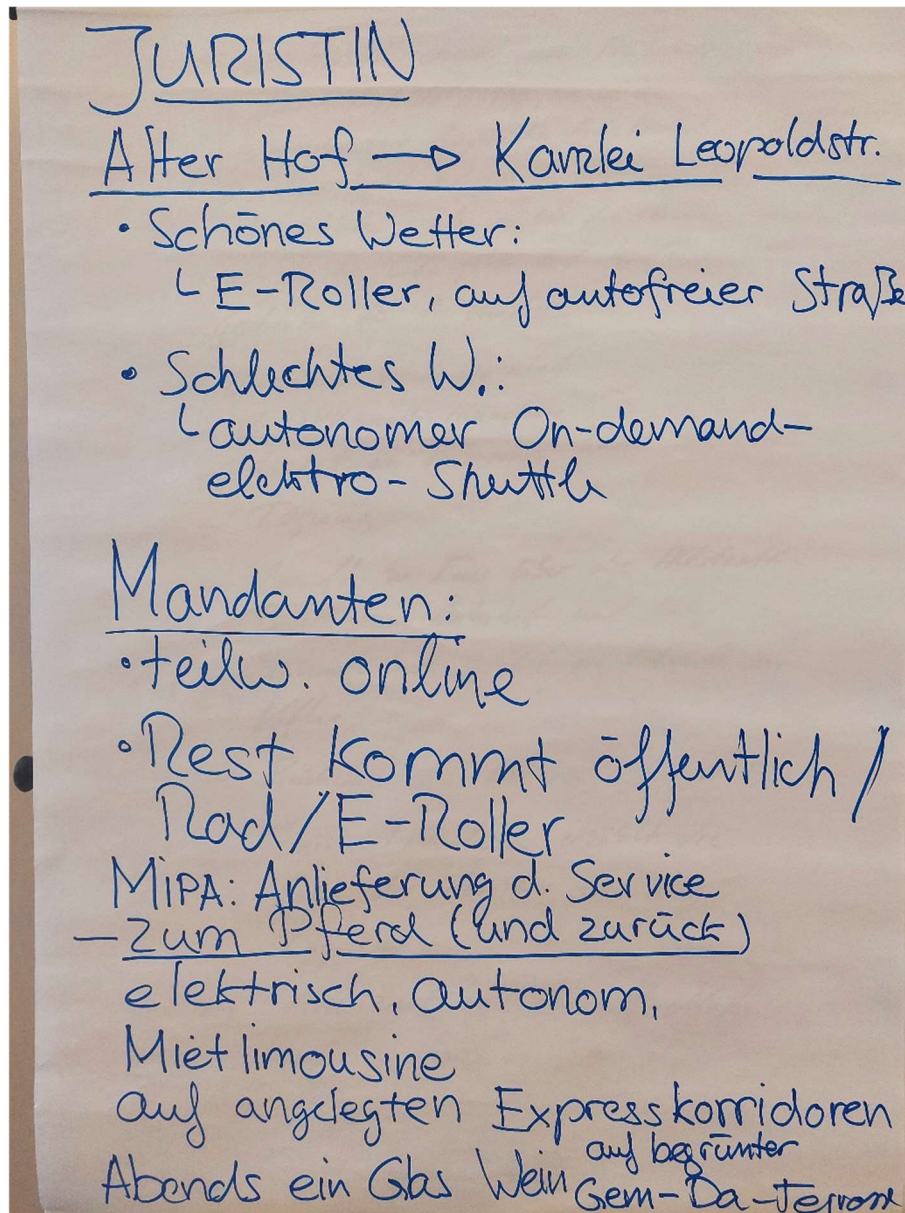 JURISTIN
Alter Hof → Kanzlei Leopoldstr.
• Schönes Wetter:
└ E-Roller, auf autofreier Straße
• Schlechtes W.:
└ autonomer On-demand-
elektro-Shuttle
Mandanten:
• teilw. online
• Rest kommt öffentlich /
Rad/E-Roller
MiPA: Anlieferung d. Service
— zum Pferd (und zurück)
elektrisch, autonom,
Mietlimousine
auf angelegten Expresskorridoren
auf begrünter
Abends ein Glas Wein Gem-Da-Terrasse